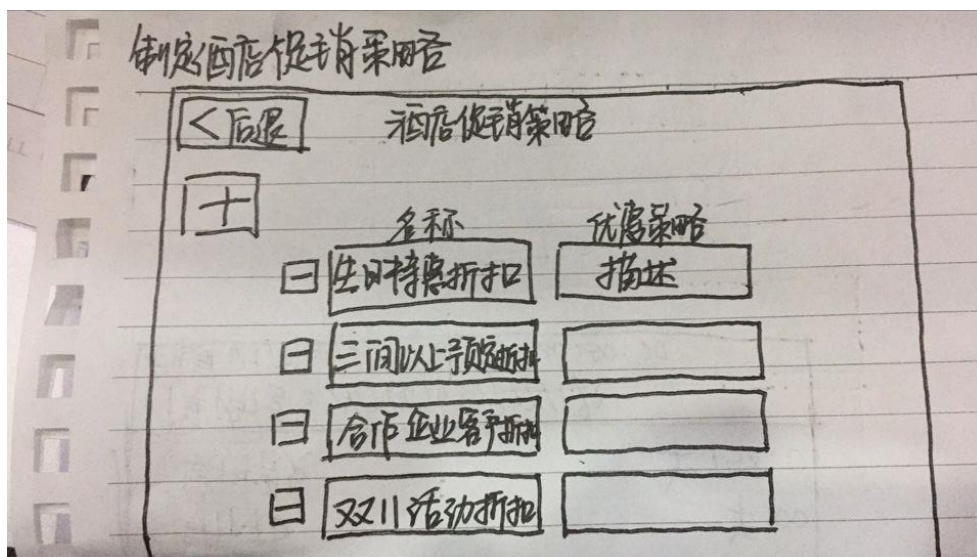 制定酒店促销策略
<后退 酒店促销策略
+
名称 优惠策略
- 生日特惠折扣 描述
- 三间以上预定折扣
- 合作企业客户折扣
- 双11活动折扣